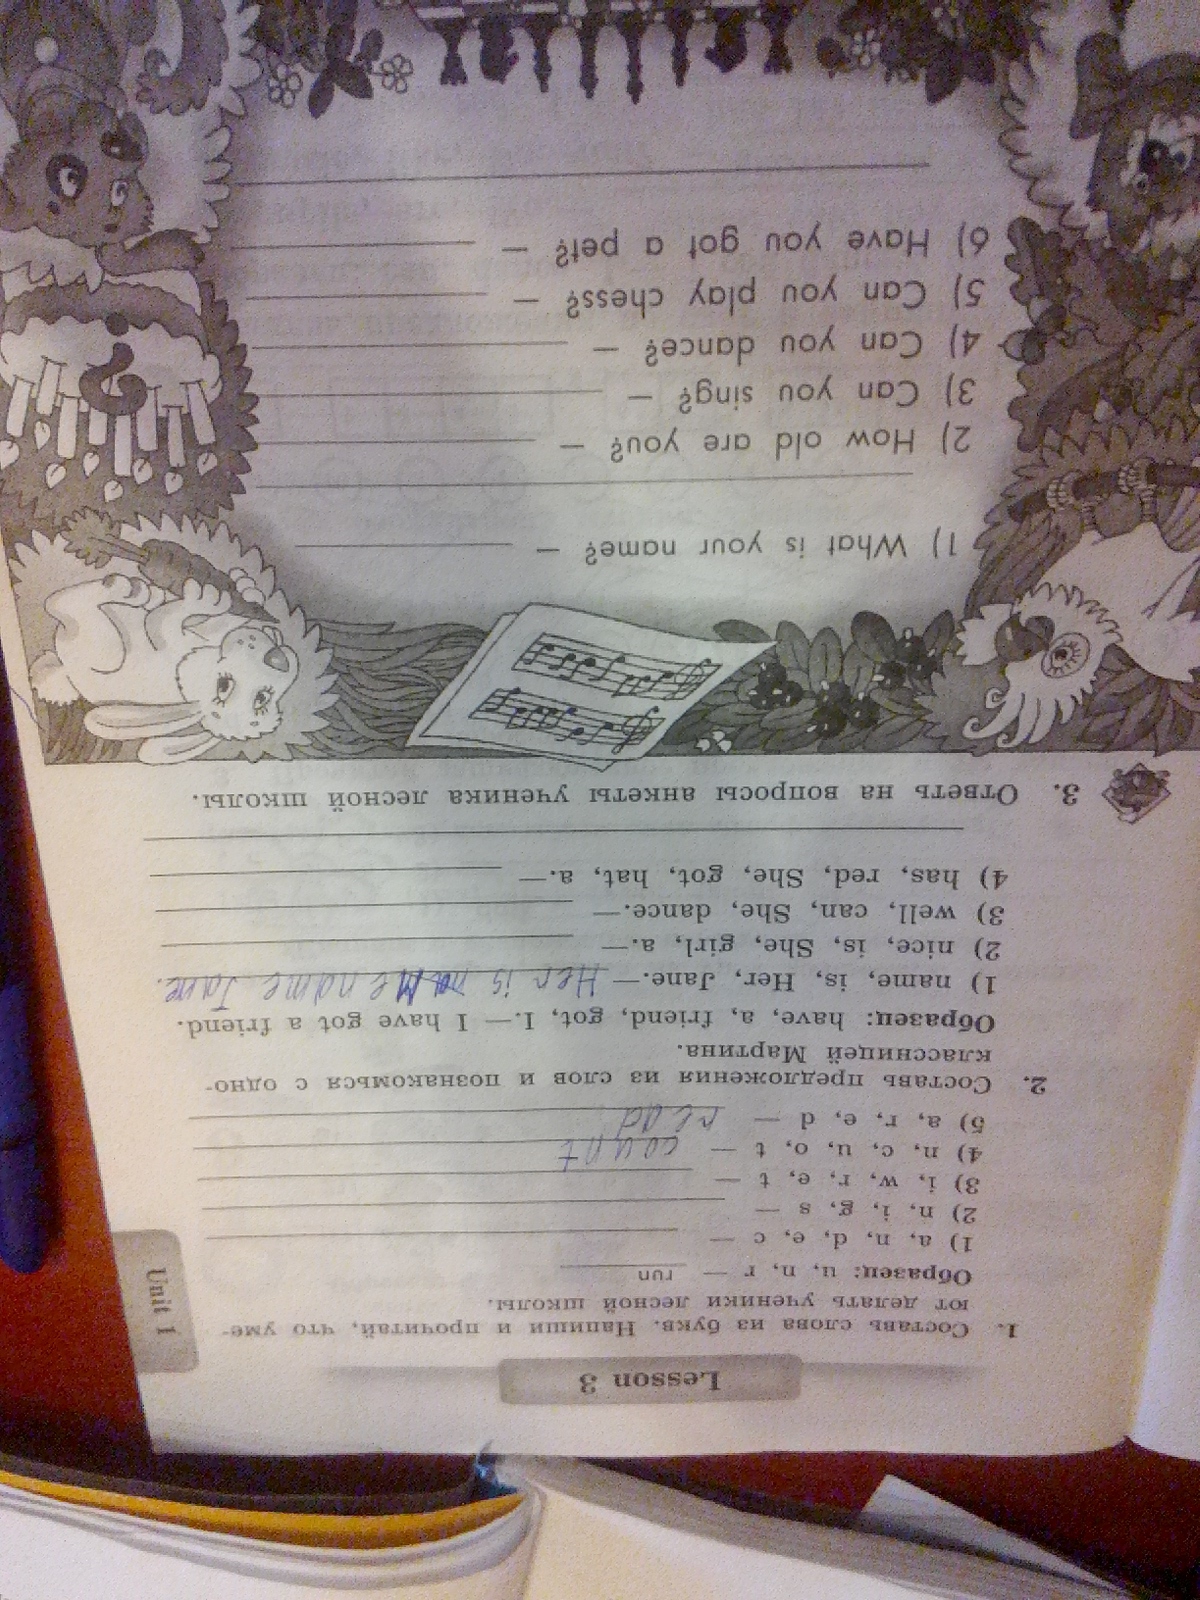 Unit 1
Lesson 3
1. Составь слова из букв. Напиши и прочитай, что уме-
ют делать ученики лесной школы.
Образец: u, n, r — run
1) a, n, d, e, c —
2) n, i, g, s —
3) i, w, r, e, t —
4) n, c, u, o, t — count
5) a, r, e, d — read
2. Составь предложения из слов и познакомься с одно-
классницей Мартина.
Образец: have, a, friend, got, I.— I have got a friend.
1) name, is, Her, Jane.— Her is name name Jane.
2) nice, is, She, girl, a.—
3) well, can, She, dance.—
4) has, red, She, got, hat, a.—
3. Ответь на вопросы анкеты ученика лесной школы.
1) What is your name? —
2) How old are you? —
3) Can you sing? —
4) Can you dance? —
5) Can you play chess? —
6) Have you got a pet? —